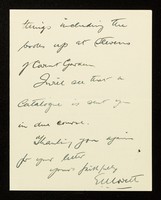 things including the
books up at Stevens
of Covent Garden.
I will see that a
Catalogue is sent you
in due course.
Thanking you again
for your letter
yours faithfully